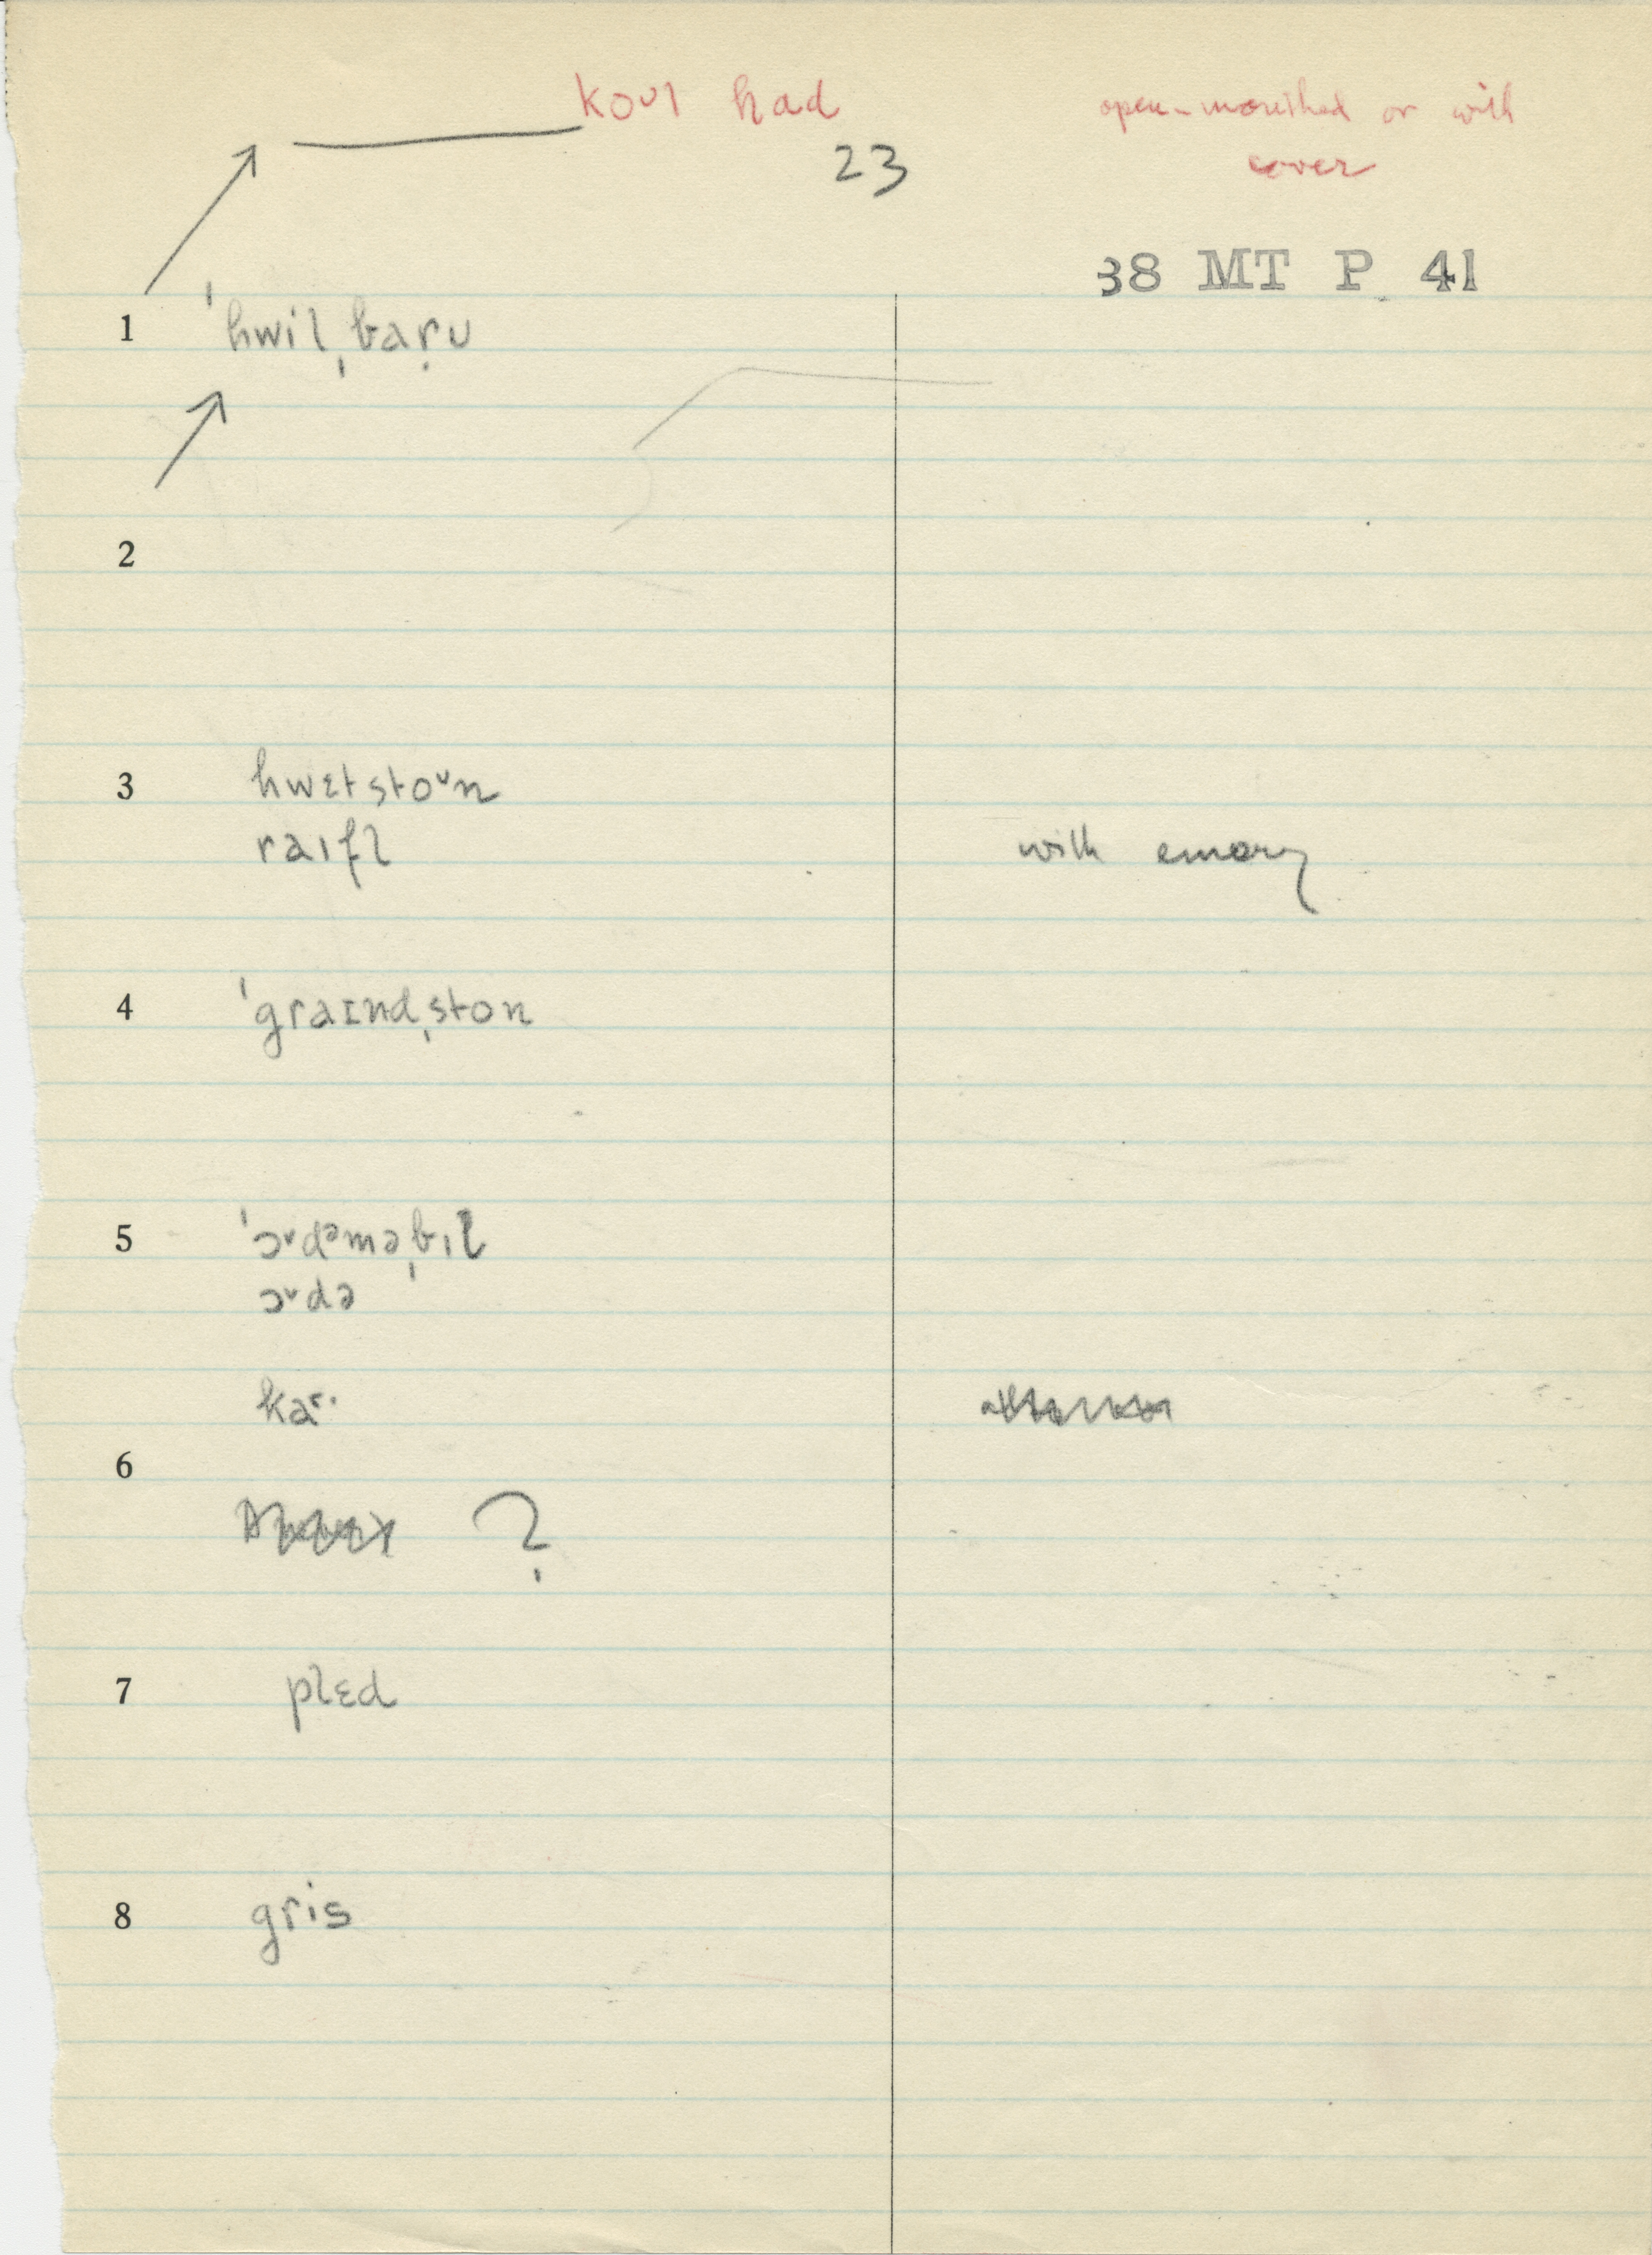 koʊl had open-mouthed or with
23 cover
38 MT P 41
1 ˈhwilˌbaṛʊ
2
3 hwɛtstoᵛn
raɪfl with emory
4 ˈgraɪndˌston
5 ˈɔᵛdᵊməˌbɪl
ɔᵛdə
kaʳ·
6
?
7 plɛd
8 gris